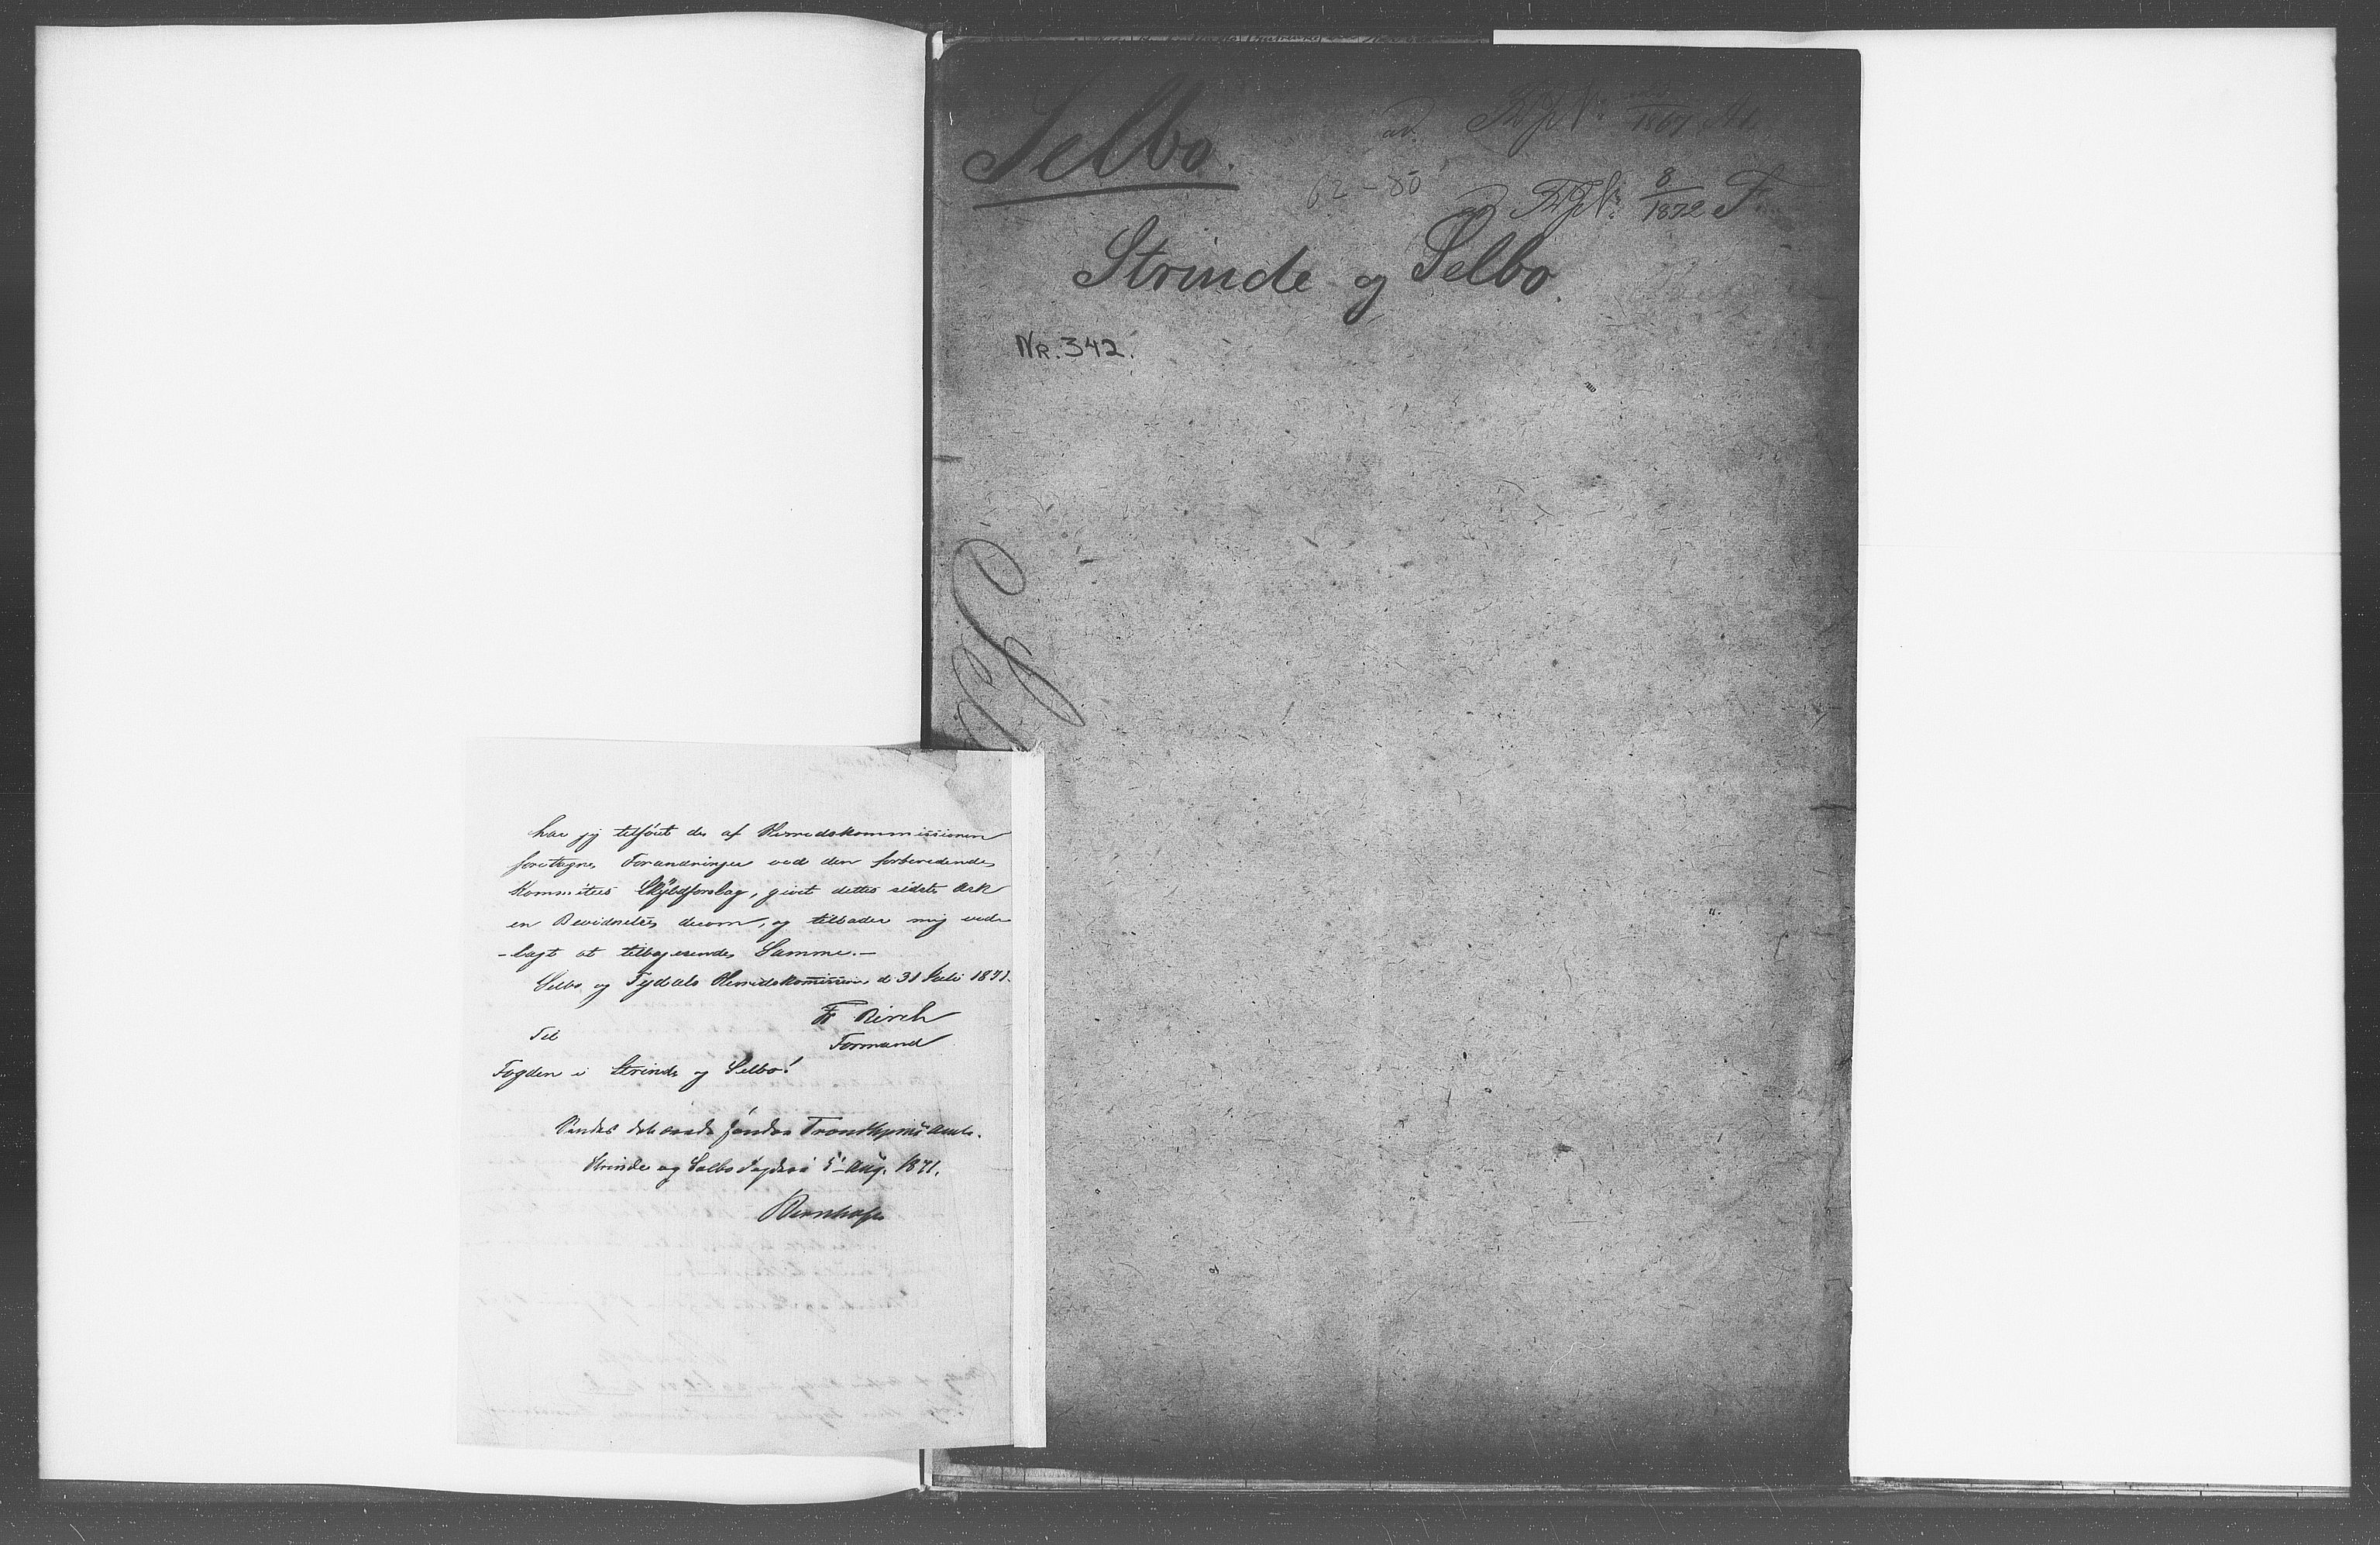 Selbo.
62-80
8/1872 F
Strinde og Selbo.
Nr. 342.
har jeg tilføiet de af Herredskommissionen
foretagne Forandringer ved den forberedende
Kommitees Skyldforslag, givet dettes sidste Ark
en Bevidnelse derom, og tillader mig ved-
-lagt at tilbagesende Samme.-
Selbo og Tydals Herredskommission d 31 Juli 1871.
Fr Birch
Formand
Til
Fogden i Strinde og Selbo!
Sendes det søndre Trondhjems Amt.
Strinde og Selbo Fogderi 5' Aug. 1871.